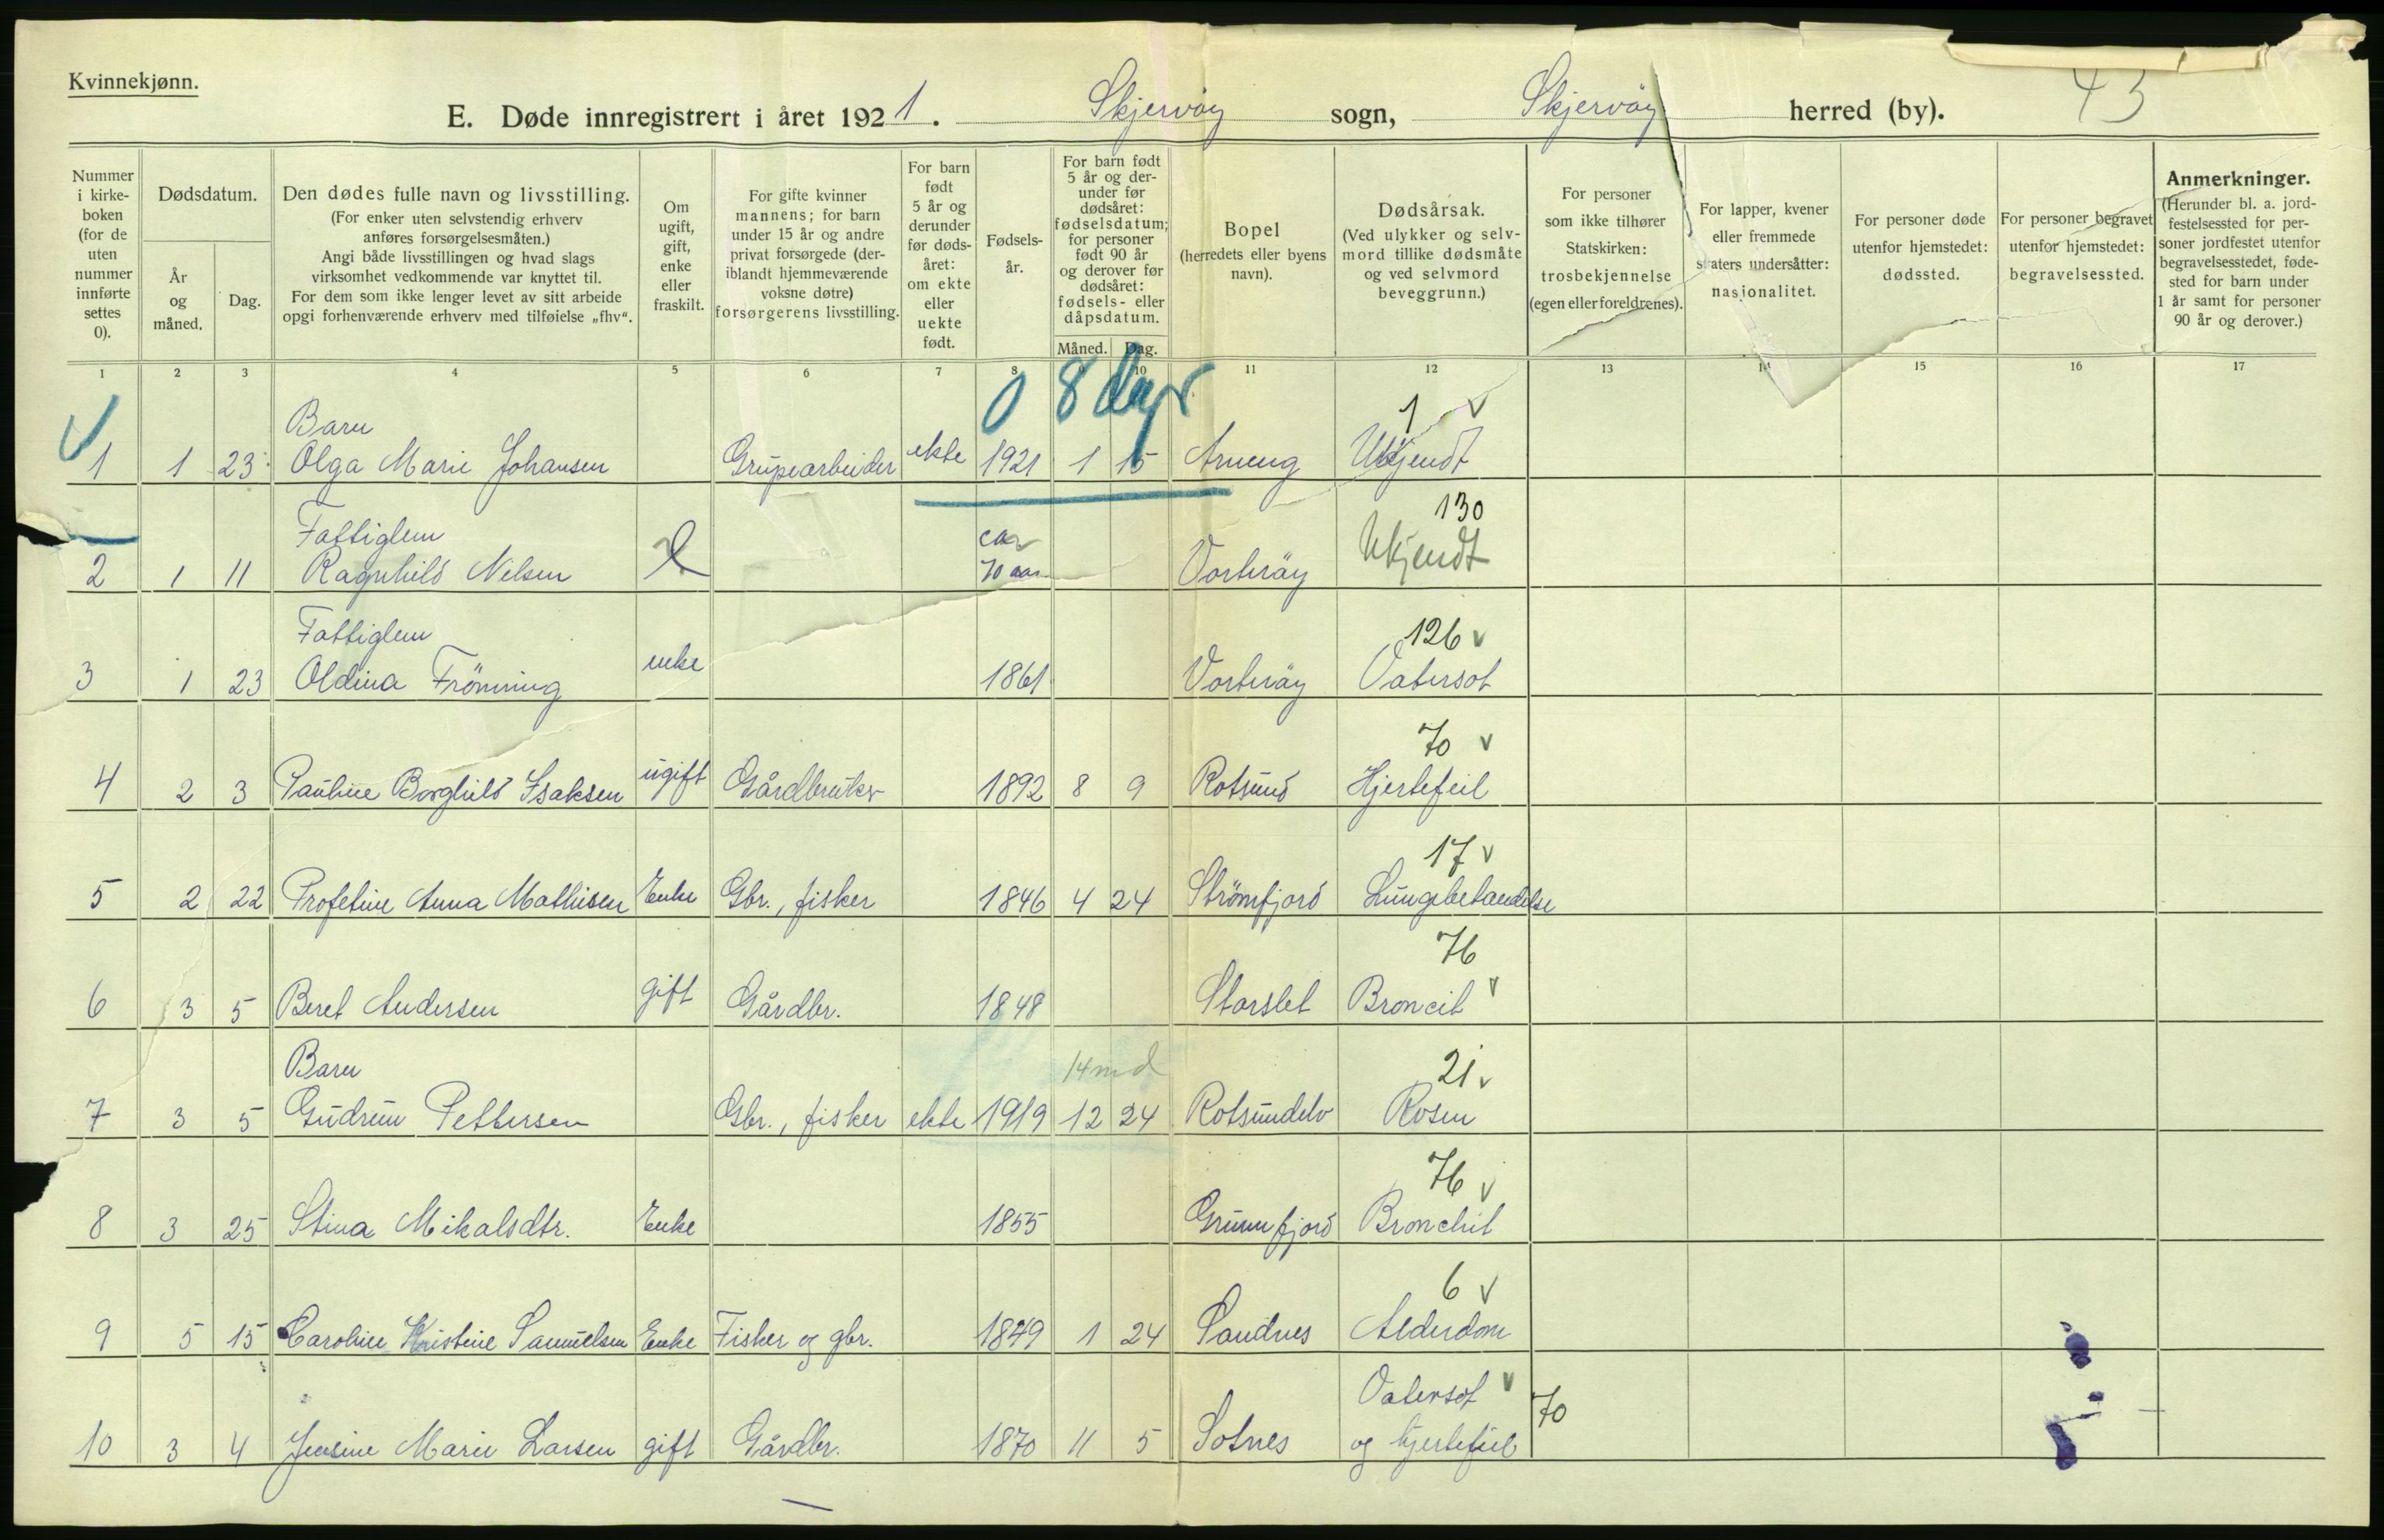 Kvinnekjønn.
E. Døde innregistrert i året 1921. Skjervöy sogn, Skjervöy herred (by). 43
Nummer i kirkeboken (for de uten nummer innførte settes 0).
Dødsdatum.
År og måned.
Dag.
Den dødes fulle navn og livsstilling.
(For enker uten selvstendig erhverv
anføres forsørgelsesmåten.)
Angi både livsstillingen og hvad slags
virksomhet vedkommende var knyttet til.
For dem som ikke lenger levet av sitt arbeide
opgi forhenværende erhverv med tilføielse „fhv“.
Om ugift, gift, enke eller fraskilt.
For gifte kvinner
mannens; for barn
under 15 år og andre
privat forsørgede (der-
iblandt hjemmeværende
voksne døtre)
forsørgerens livsstilling.
For barn
født
5 år og
derunder
før døds-
året:
om ekte
eller
uekte
født.
Fødsels-
år.
For barn født
5 år og der-
under før
dødsåret:
fødselsdatum;
for personer
født 90 år
og derover før
dødsåret:
fødsels- eller
dåpsdatum.
Måned. Dag.
Bopel
(herredets eller byens
navn).
Dødsårsak.
(Ved ulykker og selv-
mord tillike dødsmåte
og ved selvmord
beveggrunn.)
For personer
som ikke tilhører
Statskirken:
trosbekjennelse
(egen eller foreldrenes).
For lapper, kvener
eller fremmede
staters undersåtter:
nasjonalitet.
For personer døde
utenfor hjemstedet:
dødssted.
For personer begravet
utenfor hjemstedet:
begravelsessted.
Anmerkninger.
(Herunder bl. a. jord-
festelsessted for per-
soner jordfestet utenfor
begravelsesstedet, føde-
sted for barn under
1 år samt for personer
90 år og derover.)
1 2 3 4 5 6 7 8 9 10 11 12 13 14 15 16 17
0 8 dgr
Barn 1 v
1 1 23 Olga Marie Johansen Grupearbeider ekte 1921 1 15 Arneng Ukjendt
Fattiglem ca 130
2 1 11 Ragnhild Nilsen 70 aar Vorteröy Ukjendt
Fattiglem 126 v
3 1 23 Oldina Frönning enke 1861 Vorteröy Vatersot
70 v
4 2 3 Pauline Borghild Isaksen ugift Gårdbruker 1892 8 9 Rotsund Hjertefeil
17 v
5 2 22 Profetine Anna Mathisen Enke Gbr., fisker 1846 4 24 Strömfjord Lungebetændelse
76
6 3 5 Beret Andersen gift Gårdbr. 1848 Storslet Broncit v
Barn 14 md 21 v
7 3 5 Gudrun Pettersen Gbr., fisker ekte 1919 12 24 Rotsundelv Rosen
76 v
8 3 25 Stina Mikalsdtr. Enke 1855 Grunnfjord Bronchit
6 v
9 5 15 Caroline Kristine Samuelsen Enke Fisker og gbr. 1849 1 24 Sandnes Alderdom
Vatersot v 70
10 3 4 Jensine Marie Larsen gift Gårdbr. 1870 11 5 Sotnes og hjertefeil